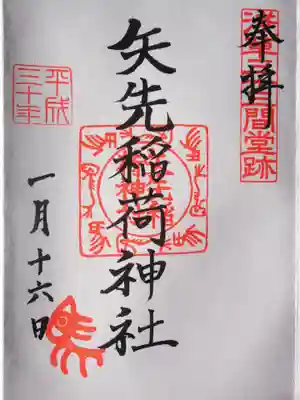 奉拝
間堂跡
矢先稲荷神社
平成
三十年
一月十六日